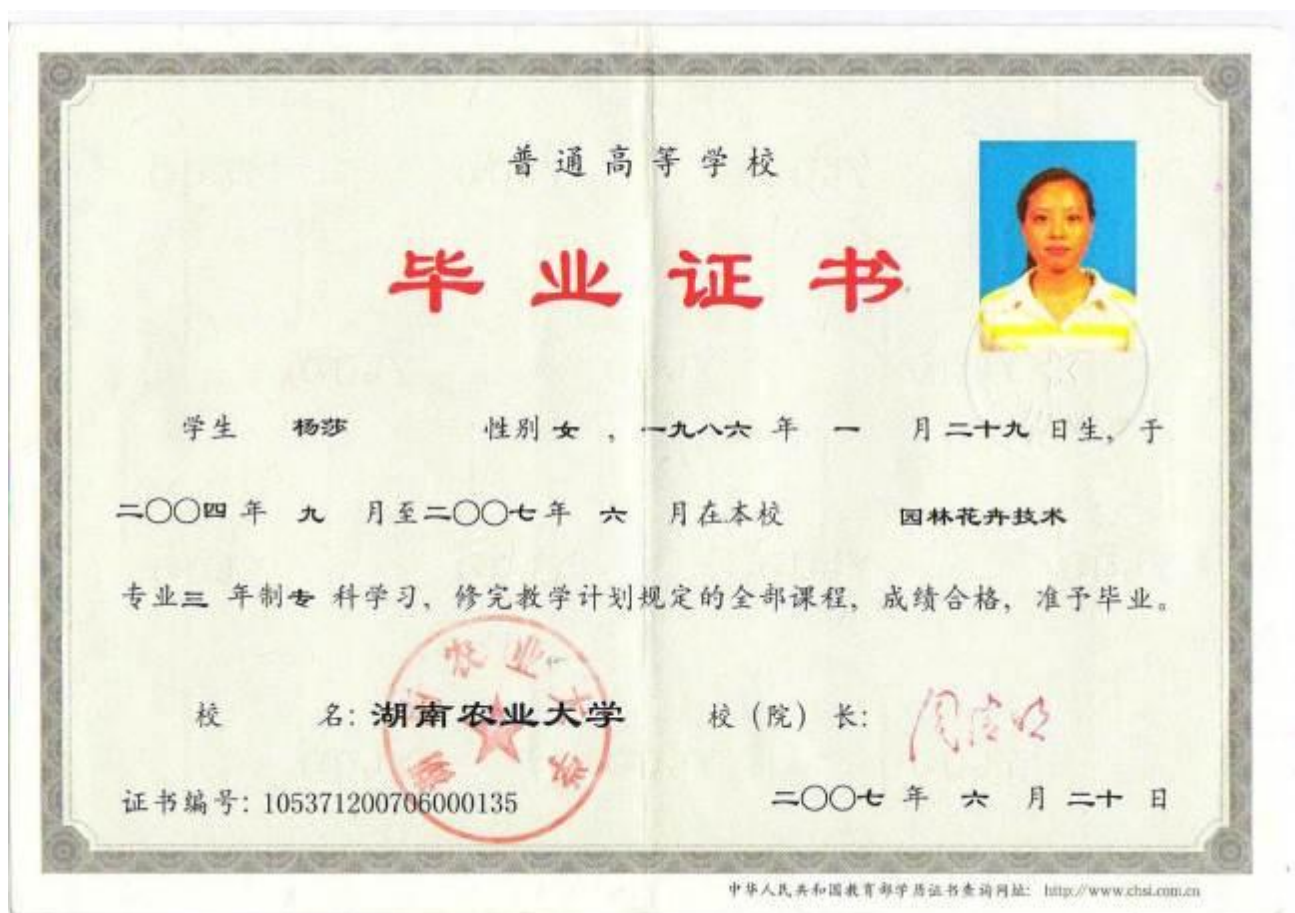 普通高等学校
毕业证书
学生 杨莎 性别 女 , 一九八六 年 一 月 二十九 日生, 于
二〇〇四 年 九 月至 二〇〇七 年 六 月在本校 园林花卉技术
专业 三 年制 专 科学习, 修完教学计划规定的全部课程, 成绩合格, 准予毕业。
校 名: 湖南农业大学 校(院)长:
湖南农业大学
证书编号: 105371200706000135 二〇〇七 年 六 月 二十 日
中华人民共和国教育部学历证书查询网址: http://www.chsi.com.cn